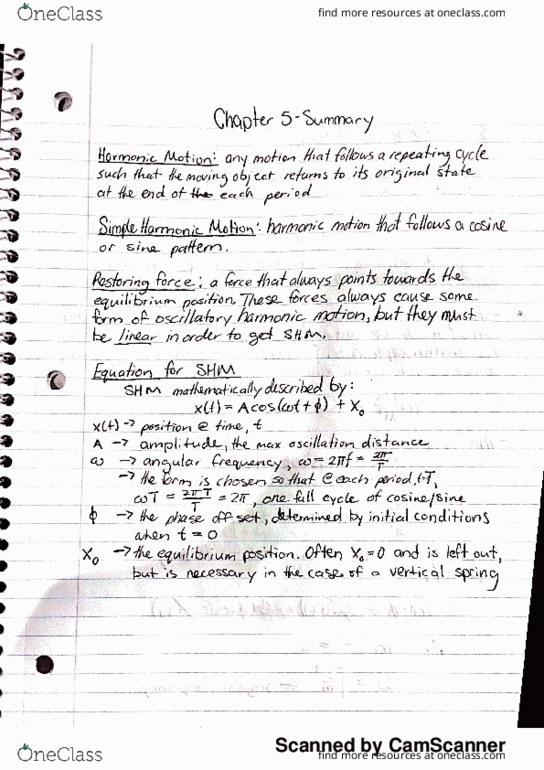 OneClass
find more resources at oneclass.com
Chapter 5-Summary
Harmonic Motion: any motion that follows a repeating cycle
such that the moving object returns to its original state
at the end of the each period
Simple Harmonic Motion: harmonic motion that follows a cosine
or sine pattern.
Restoring force: a force that always points towards the
equilibrium position. These forces always cause some
form of oscillatory harmonic motion, but they must
be linear in order to get SHM.
Equation for SHM
SHM mathematically described by:
x(t) = Acos(ωt + ϕ) + X₀
x(t) -> position @ time, t
A -> amplitude, the max oscillation distance
ω -> angular frequency, ω = 2πf = 2π/T
-> the form is chosen so that @ each period, t=T,
ωT = 2πT/T = 2π, one full cycle of cosine/sine
ϕ -> the phase off set, determined by initial conditions
when t = 0
X₀ -> the equilibrium position. Often X₀ = 0 and is left out,
but is necessary in the case of a vertical spring
Scanned by CamScanner
OneClass
find more resources at oneclass.com